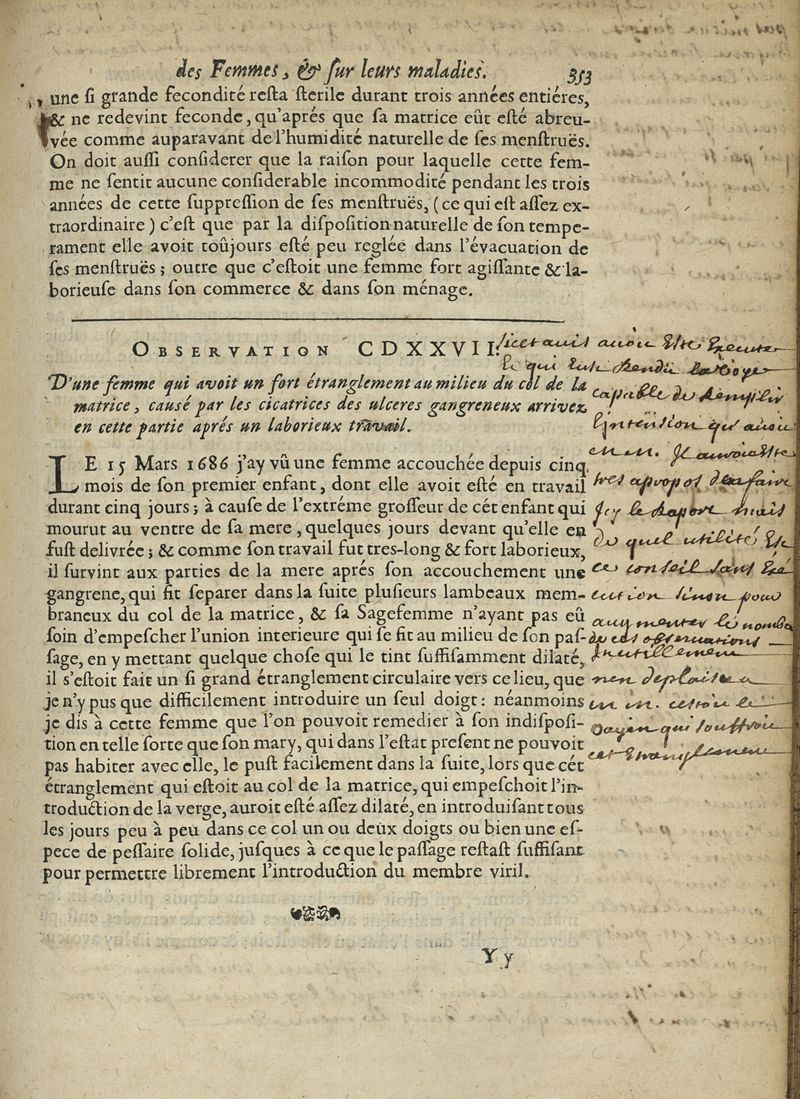 des Femmes, & ſur leurs maladies. 353
une ſi grande fecondité reſta ſterile durant trois années entiéres,
& ne redevint feconde, qu'aprés que ſa matrice eût eſté abreu-
vée comme auparavant de l'humidité naturelle de ſes menſtruës.
On doit auſſi conſiderer que la raiſon pour laquelle cette fem-
me ne ſentit aucune conſiderable incommodité pendant les trois
années de cette ſuppreſſion de ſes menſtruës, (ce qui eſt aſſez ex-
traordinaire) c'eſt que par la diſpoſition naturelle de ſon tempe-
rament elle avoit toûjours eſté peu reglée dans l'évacuation de
ſes menſtruës; outre que c'eſtoit une femme fort agiſſante & la-
borieuſe dans ſon commerce & dans ſon ménage.
OBSERVATION CDXXVII.
D'une femme qui avoit un fort étranglement au milieu du col de la
matrice, cauſé par les cicatrices des ulceres gangreneux arrivez
en cette partie aprés un laborieux travail.
LE 15 Mars 1686 j'ay vû une femme accouchée depuis cinq
mois de ſon premier enfant, dont elle avoit eſté en travail
durant cinq jours; à cauſe de l'extréme groſſeur de cét enfant qui
mourut au ventre de ſa mere, quelques jours devant qu'elle en
fuſt delivrée; & comme ſon travail fut tres-long & fort laborieux,
il ſurvint aux parties de la mere aprés ſon accouchement une
gangrene, qui fit ſeparer dans la ſuite pluſieurs lambeaux mem-
braneux du col de la matrice, & ſa Sagefemme n'ayant pas eû
ſoin d'empeſcher l'union interieure qui ſe fit au milieu de ſon paſ-
ſage, en y mettant quelque choſe qui le tint ſuffiſamment dilaté,
il s'eſtoit fait un ſi grand étranglement circulaire vers ce lieu, que
je n'y pus que difficilement introduire un ſeul doigt: néanmoins
je dis à cette femme que l'on pouvoit remedier à ſon indiſpoſi-
tion en telle ſorte que ſon mary, qui dans l'eſtat preſent ne pouvoit
pas habiter avec elle, le puſt facilement dans la ſuite, lors que cét
étranglement qui eſtoit au col de la matrice, qui empeſchoit l'in-
troduction de la verge, auroit eſté aſſez dilaté, en introduiſant tous
les jours peu à peu dans ce col un ou deux doigts ou bien une eſ-
pece de peſſaire ſolide, juſques à ce que le paſſage reſtaſt ſuffiſant
pour permettre librement l'introduction du membre viril.
Y y
ſi cet auis auoit
ce qui
capable de Remplir
l'intention qu'auoit
tres apropos
icy le Raport mais
de quel utilité
ce conſeil ſans
ſinon pour
augmenter le nombre
de ces obſeruations
inutillement
qui ſouffroit
cet étranglement